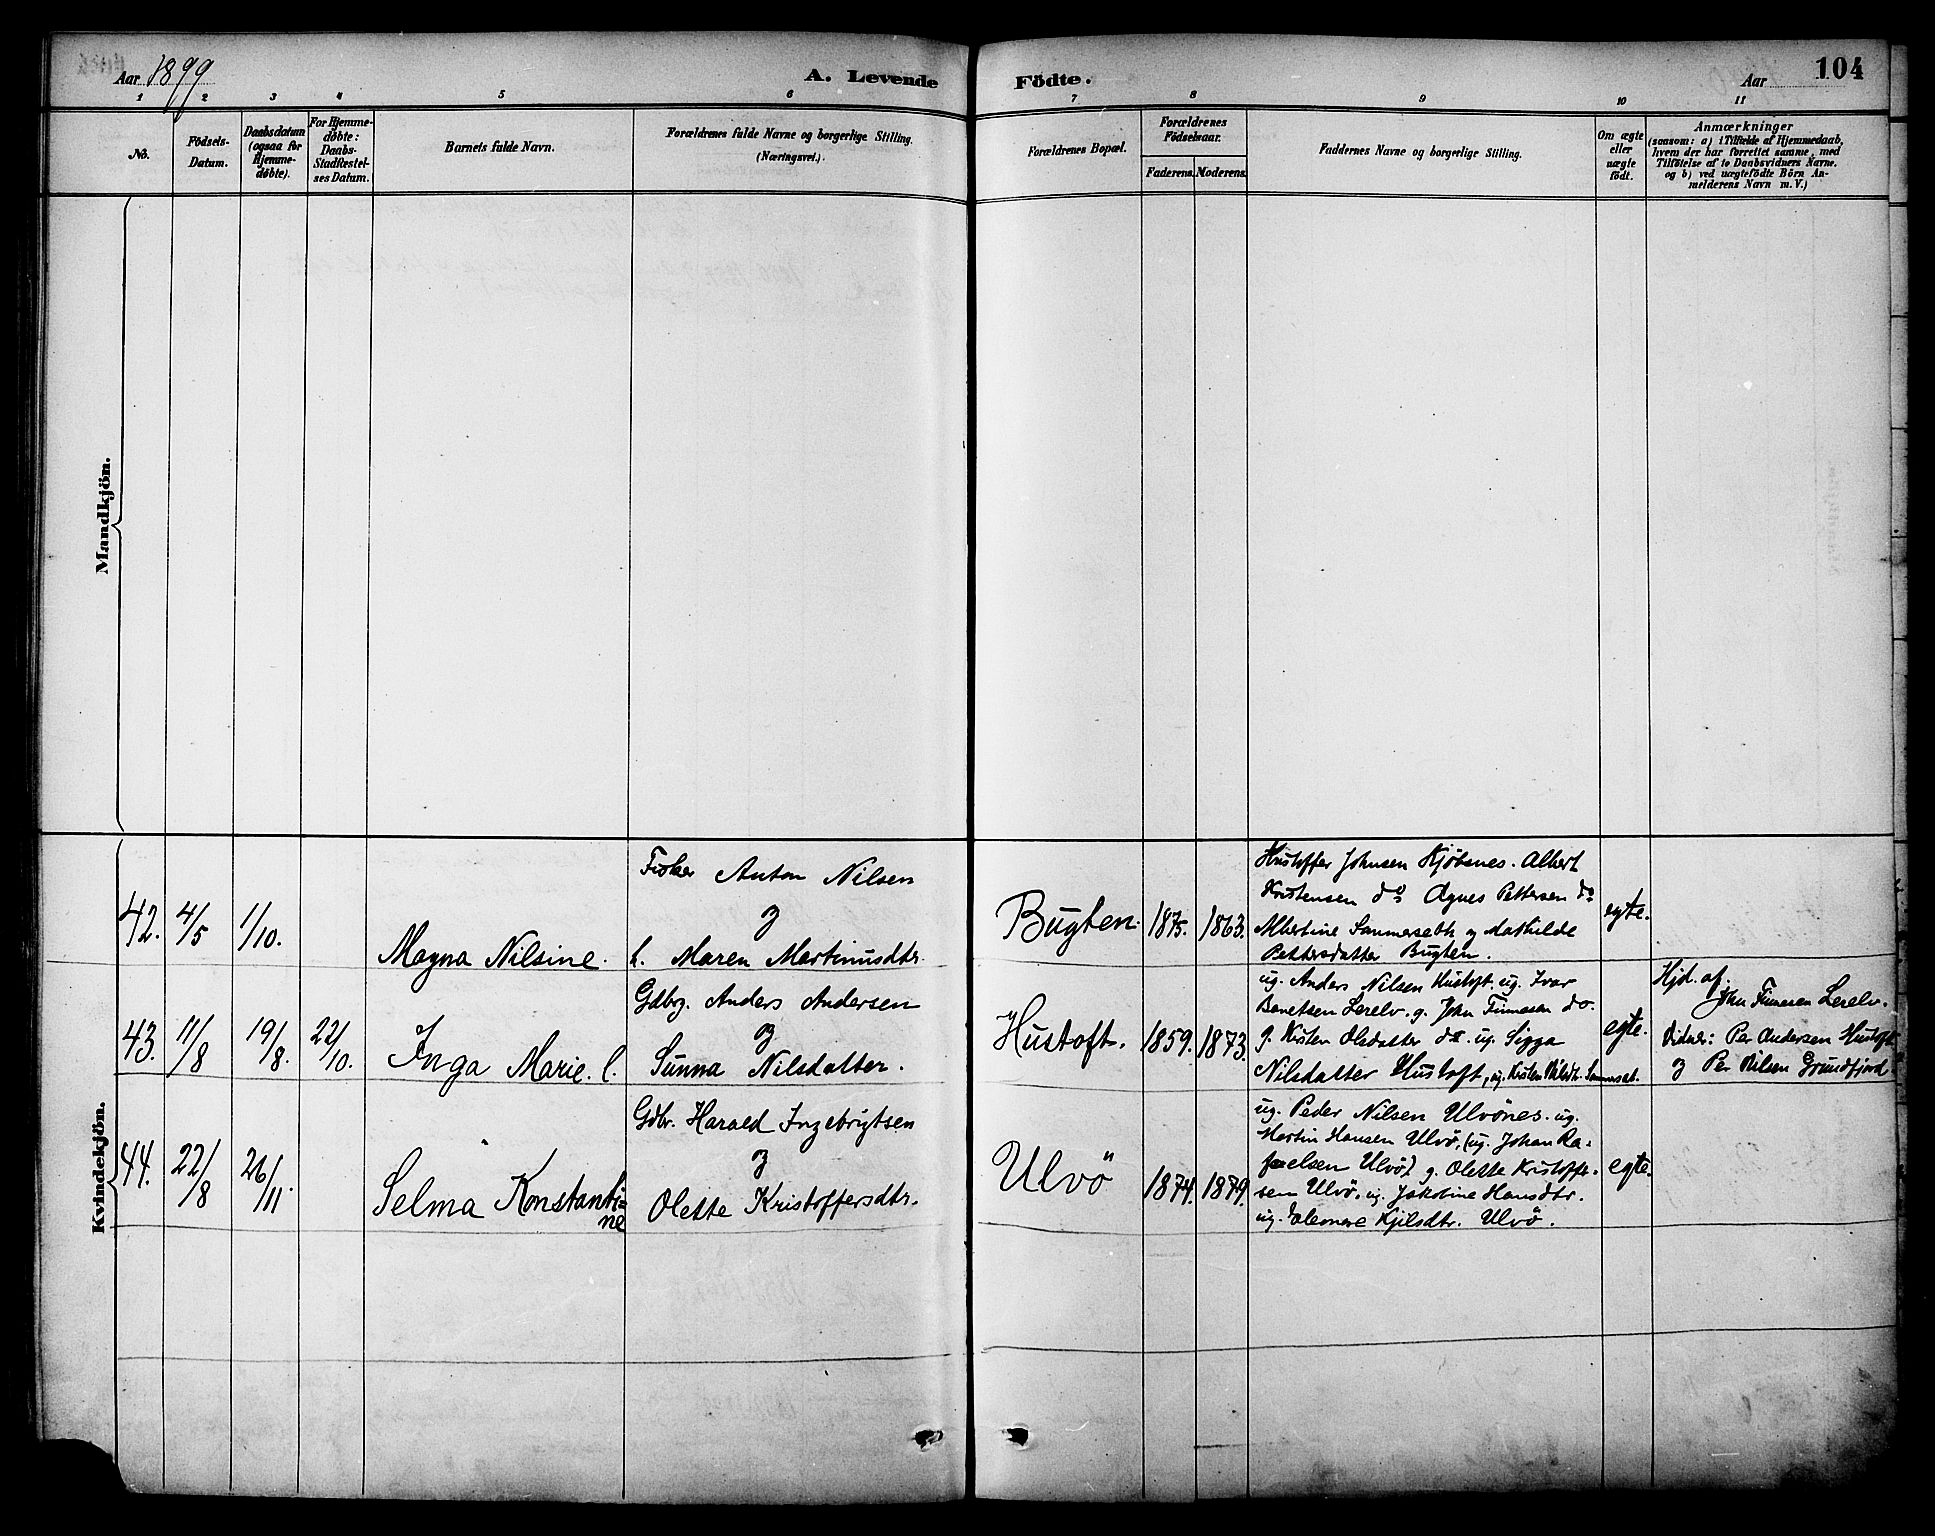 Aar 1899
A. Levende
Födte.
Aar
104
1 2 3 4 5 6 7 8 9 10 11
No.
Födsels-
Datum.
Daabsdatum
(ogsaa for
Hjemme-
døbte).
For Hjemme-
døbte:
Daabs-
Stadfæstel-
ses Datum.
Barnets fulde Navn.
Forældrenes fulde Navne og borgerlige Stilling.
(Næringsvei.)
Forældrenes Bopæl.
Forældrenes
Födselsaar.
Faderens.
Moderens.
Faddernes Navne og borgerlige Stilling.
Om ægte
eller
uægte
födt.
Anmærkninger
(saasom: a) i Tilfælde af Hjemmedaab,
hvem der har forrettet samme, med
Tilföielse af to Daabsvidners Navne.
og b) ved uægtefödte Börn An-
melderens Navn m. V.)
Mandkjön.
Kvindekjön.
42.
4/5
1/10.
Magna Nilsine.
Fisker Anton Nilsen
og
h. Maren Martinusdtr.
Bugten.
1875.
1863.
Kristoffer Johnsen Kjöbsnes. Albert
Kristensen do Agnes Pettersen do
Albertine Sammerseth og Mathilde
Pettersdatter Bugten.
egte.
43.
11/8
19/8.
22/10.
Inga Marie. l.
Gdbrg. Anders Andersen
og
Sunna Nilsdatter.
Hustoft.
1859.
1873.
ug. Anders Nilsen Hustoft. ug. Ivar
Bentsen Lerelv. g. John Finnesen do.
g. Kisten Olsdatter do. ug. Sigga
Nilsdatter Hustoft, ug. Kisten Nilsdtr. Sammerset.
egte.
Hjd. af
John Finnesen Lerelv.
Vidner: Per Andersen Hustoft
og Per Nilsen Grundfjord.
44.
22/8
26/11.
Selma Konstanti-
ne
Gdbr. Harald Ingebrigtsen
og
Olette Kristoffersdtr.
Ulvö
1874.
1879.
ug. Peder Nilsen Ulvönes. ug.
Martin Hansen Ulvö, (ug. Johan Ra-
faelsen Ulvö) g. Olette Kristoffe-
sen Ulvö. ug. Jakobine Hansdtr.
ug. Eleonore Kjilsdtr. Ulvö.
egte.